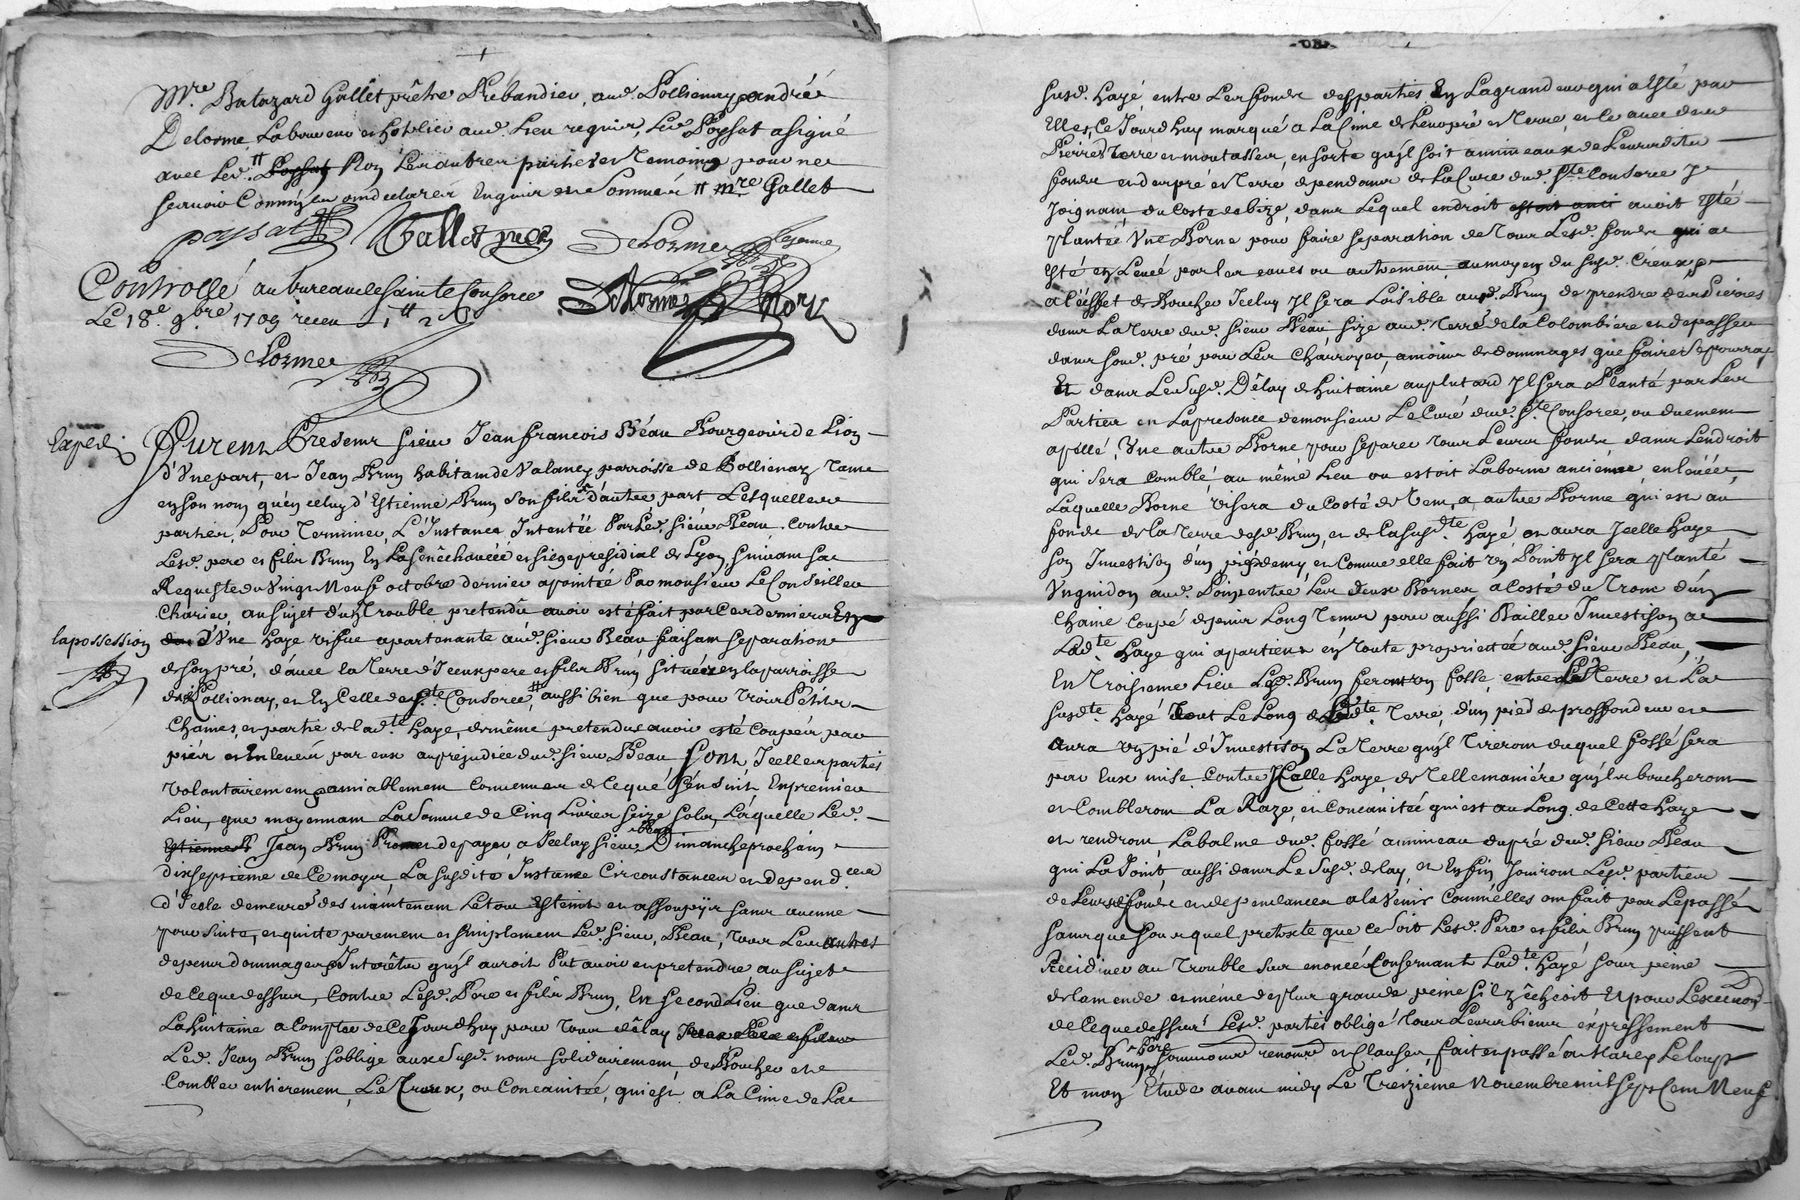 Mre Batazard Gallet prêtre Prébandier, aud. Pollienay, andré
Delorme Laboureur et hôtelier aud. Lieu requis, Led. Paysat a signé
avec Led. # Paysat Non Les autres parties et temoins pour ne
scavoir Comme ils ont declaré Enquis et Sommés # mre Gallet
paysat Gallet pred DeLorme Lejeune
Controllé au bureau de Sainte Consorce Delorme Nory
Le 18e 9bre 1709 receu 1 tt 2 s
DeLorme
Exped.
Furent Presents sieur Jean francois Béau Bourgeois de Lion
d'Vne part, et Jean Brun habitant de Valancy parroisse de Pollienay tant
en son nom qu'en celuy d'Estienne Brun son fils d'autre part Lesquelles
parties, Pour Terminer L'Instance Intentée Par Led. sieur Beau, contre
Lesd. pere et fils Brun En La sênêchaucée et siege presidial de Lyon suivant sa
Requeste du Vingt Neuf octobre dernier apointée Par monsieur Le Conseiller
Charier, au sujet d'un Trouble pretendû avoir esté fait par Ces derniers En
la possession
d'Vne haye visue apartenante aud. sieur Beau faisant separation
de son pré, d'avec la Terre d'Iceux pere et fils Brun situées en la parroisse
de Pollienay, et En Celle de Ste. Consorce, # aussi bien que pour trois Petits
Chaines, et partie de lad.te haye, de même pretendus avoir esté Coupés par
pieds et Enlevés par eux au prejudice dud. sieur Beau Sont Icelles parties
Volontairement et amiablement Convenues de Ceque s'ensuit, En premier
Lieu, que moyennant La Somme de Cinq Livres seize sols, Laquelle Led.
Estienne B Jean Brun Promet de payer a Iceluy sieur Beau Dimanche prochain
dixseptième de Ce mois La susdite Instance Circonstances et depend.ces
d'Icelle demeure dès maintenant Le tout Esteint et assoupÿ sans aucune
poursuite, et quitte purement et simplement Led. sieur Beau, tous Les autres
depens dommages et Interêts qu'jl auroit Put avoir et pretendre au sujet
de Ceque dessus, Contre Lesd. Pere et fils Brun, En second Lieu que dans
La huitaine a Compter de Ce Jourdhuy pour tout délay
Led. Jean Brun s'oblige aux susd. noms solidairement de Boucher et
Combler entierement, Le Creux, ou Concavité, qui est a La Cime de La
susd. haye, entre Les fonds desparties En La grandeur qui a Esté par
Elles Ce Jourdhuy marqué a La Cime de Leur pré et Terre, et Ce avec des
Pierres terre et moutasses, en sorte qu'jl soit au niveau de Leurs dits
fonds et des pré et Terre dependans de La Cure dud. Ste. Consorce J
Joignant du Costé de bize, dans Lequel endroit estoit anci avoit Esté
planté Vne Borne pour faire separation de tous Lesd. fonds qui a
Esté en Levée par Les eaues ou autrement, au moyen du susd. Creux
a l'effet de Boucher Iceluy Jl sera Loisible aud. Brun de prendre des Pierres
dans La terre dud. sieur Beau size aud. Terre de la Colombiere et de passer
dans sond. pré pour Les Charroyer, a moins de dommages que faire se pourra
Et dans Le susd. Délay de huitaine au plutard Jl sera Planté par Les
Parties en La presence de monsieur Le Curé dud. Ste Consorce, ou duement
apellé, Vne autre Borne pour separer tous Leurs fonds dans Lendroit
qui sera comblé, au même Lieu ou estoit La borne ancienne enlevée
Laquelle Borne Visera du Costé de Vent, a autre Borne qui est au
fonds de La Terre desd. Brun, et de La susd.te haye, et aura Icelle haye
son Investison d'un pied demy, et Comme elle fait un Point Jl sera planté
Vn guidon aud. Point entre Les deux Bornes a Costé du tronc d'un
Chaine Coupé depuis Long Temps pour aussi Bailler Investison a
Lad.te haye qui apartient en toute proprietté aud. sieur Beau,
En Troisieme Lieu Lesd. Brun feront un fossé, entre La Terre et La
susd.te haye Tout Le Long de Lad.te Terre, d'un pied de proffondeur et
aura un pié d'Investison La Terre qu'jls Tireront duquel fossé sera
par Eux mise contre Icelle haye, de Telle maniére qu'jls boucheront
et Combleront La Raze, et Concavitée qui est au Long de Cette haye
et rendront La balme dud. fossé au niveau du pré dud. sieur Beau
qui La Joint, aussi dans Le susd. delay, et Enfin Jouiront Lesd. parties
de Leursd. fonds et dependances a la Venir Comme Elles ont fait par Le passé
sans que sous quel pretexte que Ce soit Lesd. Pere et fils Brun puissent
Recidiver au Trouble sus enoncée Consernant Lad.te haye sous peine
de lamende et méme de plus grande peine s'il z'échéoit Et pour Lexecu.on
de Ceque dessus Lesd. parties obligé tous Leurs biens expressement
Led. Brun Pere soumissions renonc.ons et Clauses, fait et passé au Marest Leloup
Et mon Etude avant midy Le Treizieme Novembre mil sept Cent Neuf